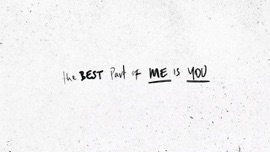 the BEST Part of ME is YOU